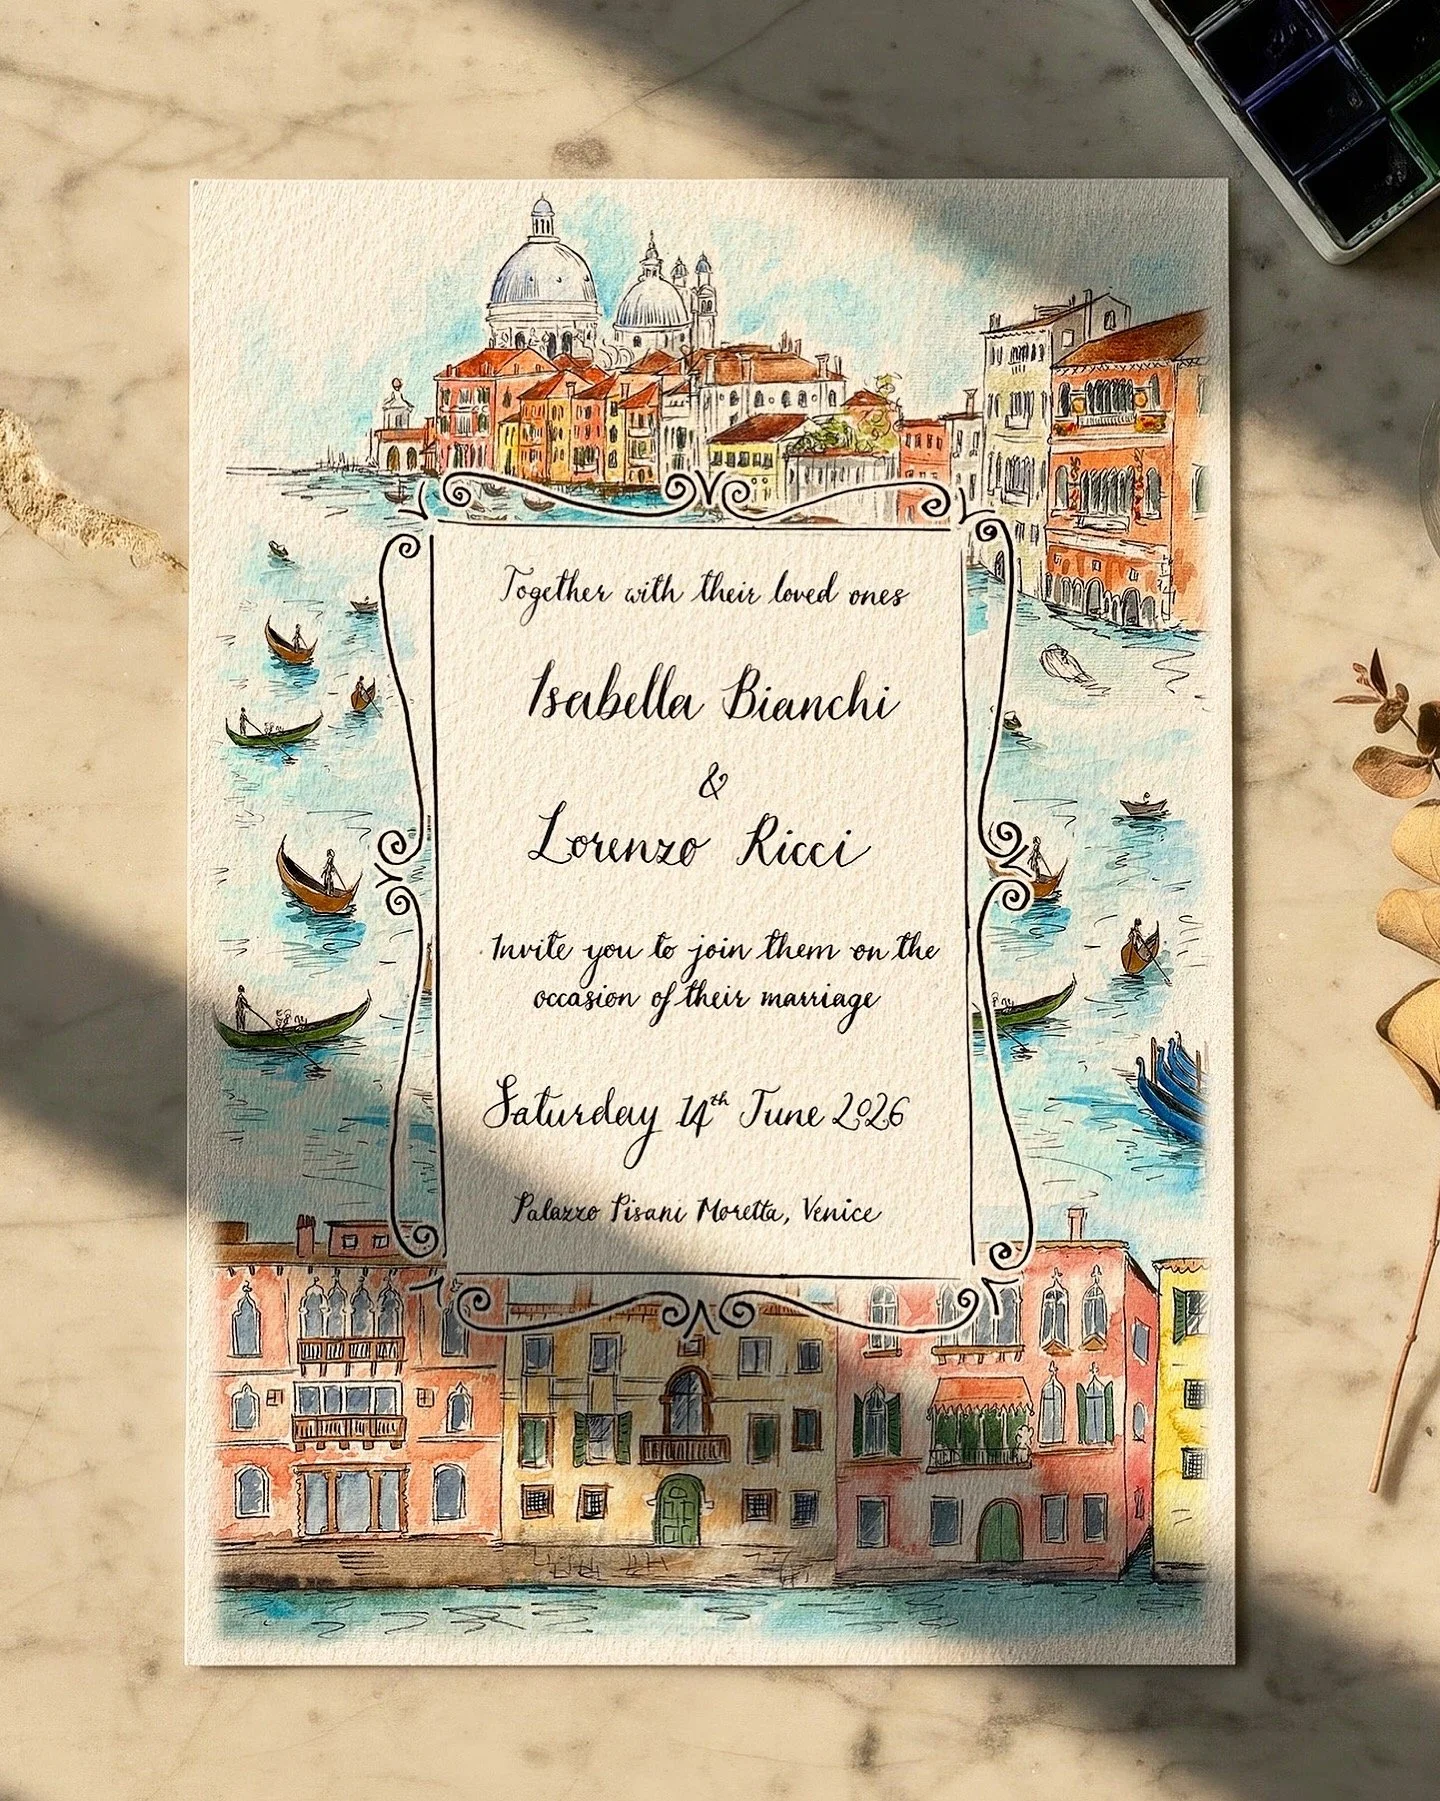 Together with their loved ones
Isabella Bianchi
&
Lorenzo Ricci
Invite you to join them on the
occasion of their marriage
Saturday 14th June 2026
Palazzo Pisani Moretta, Venice